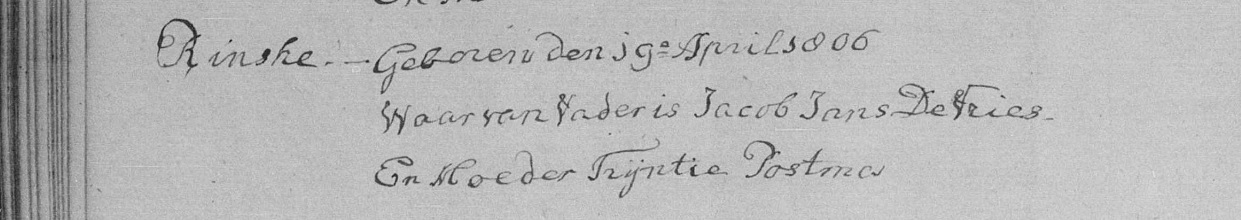 Rinske. — Geboren den 19e April 1806
Waar van Vader is Jacob Jans De Vries.
En Moeder Trÿntie Postma